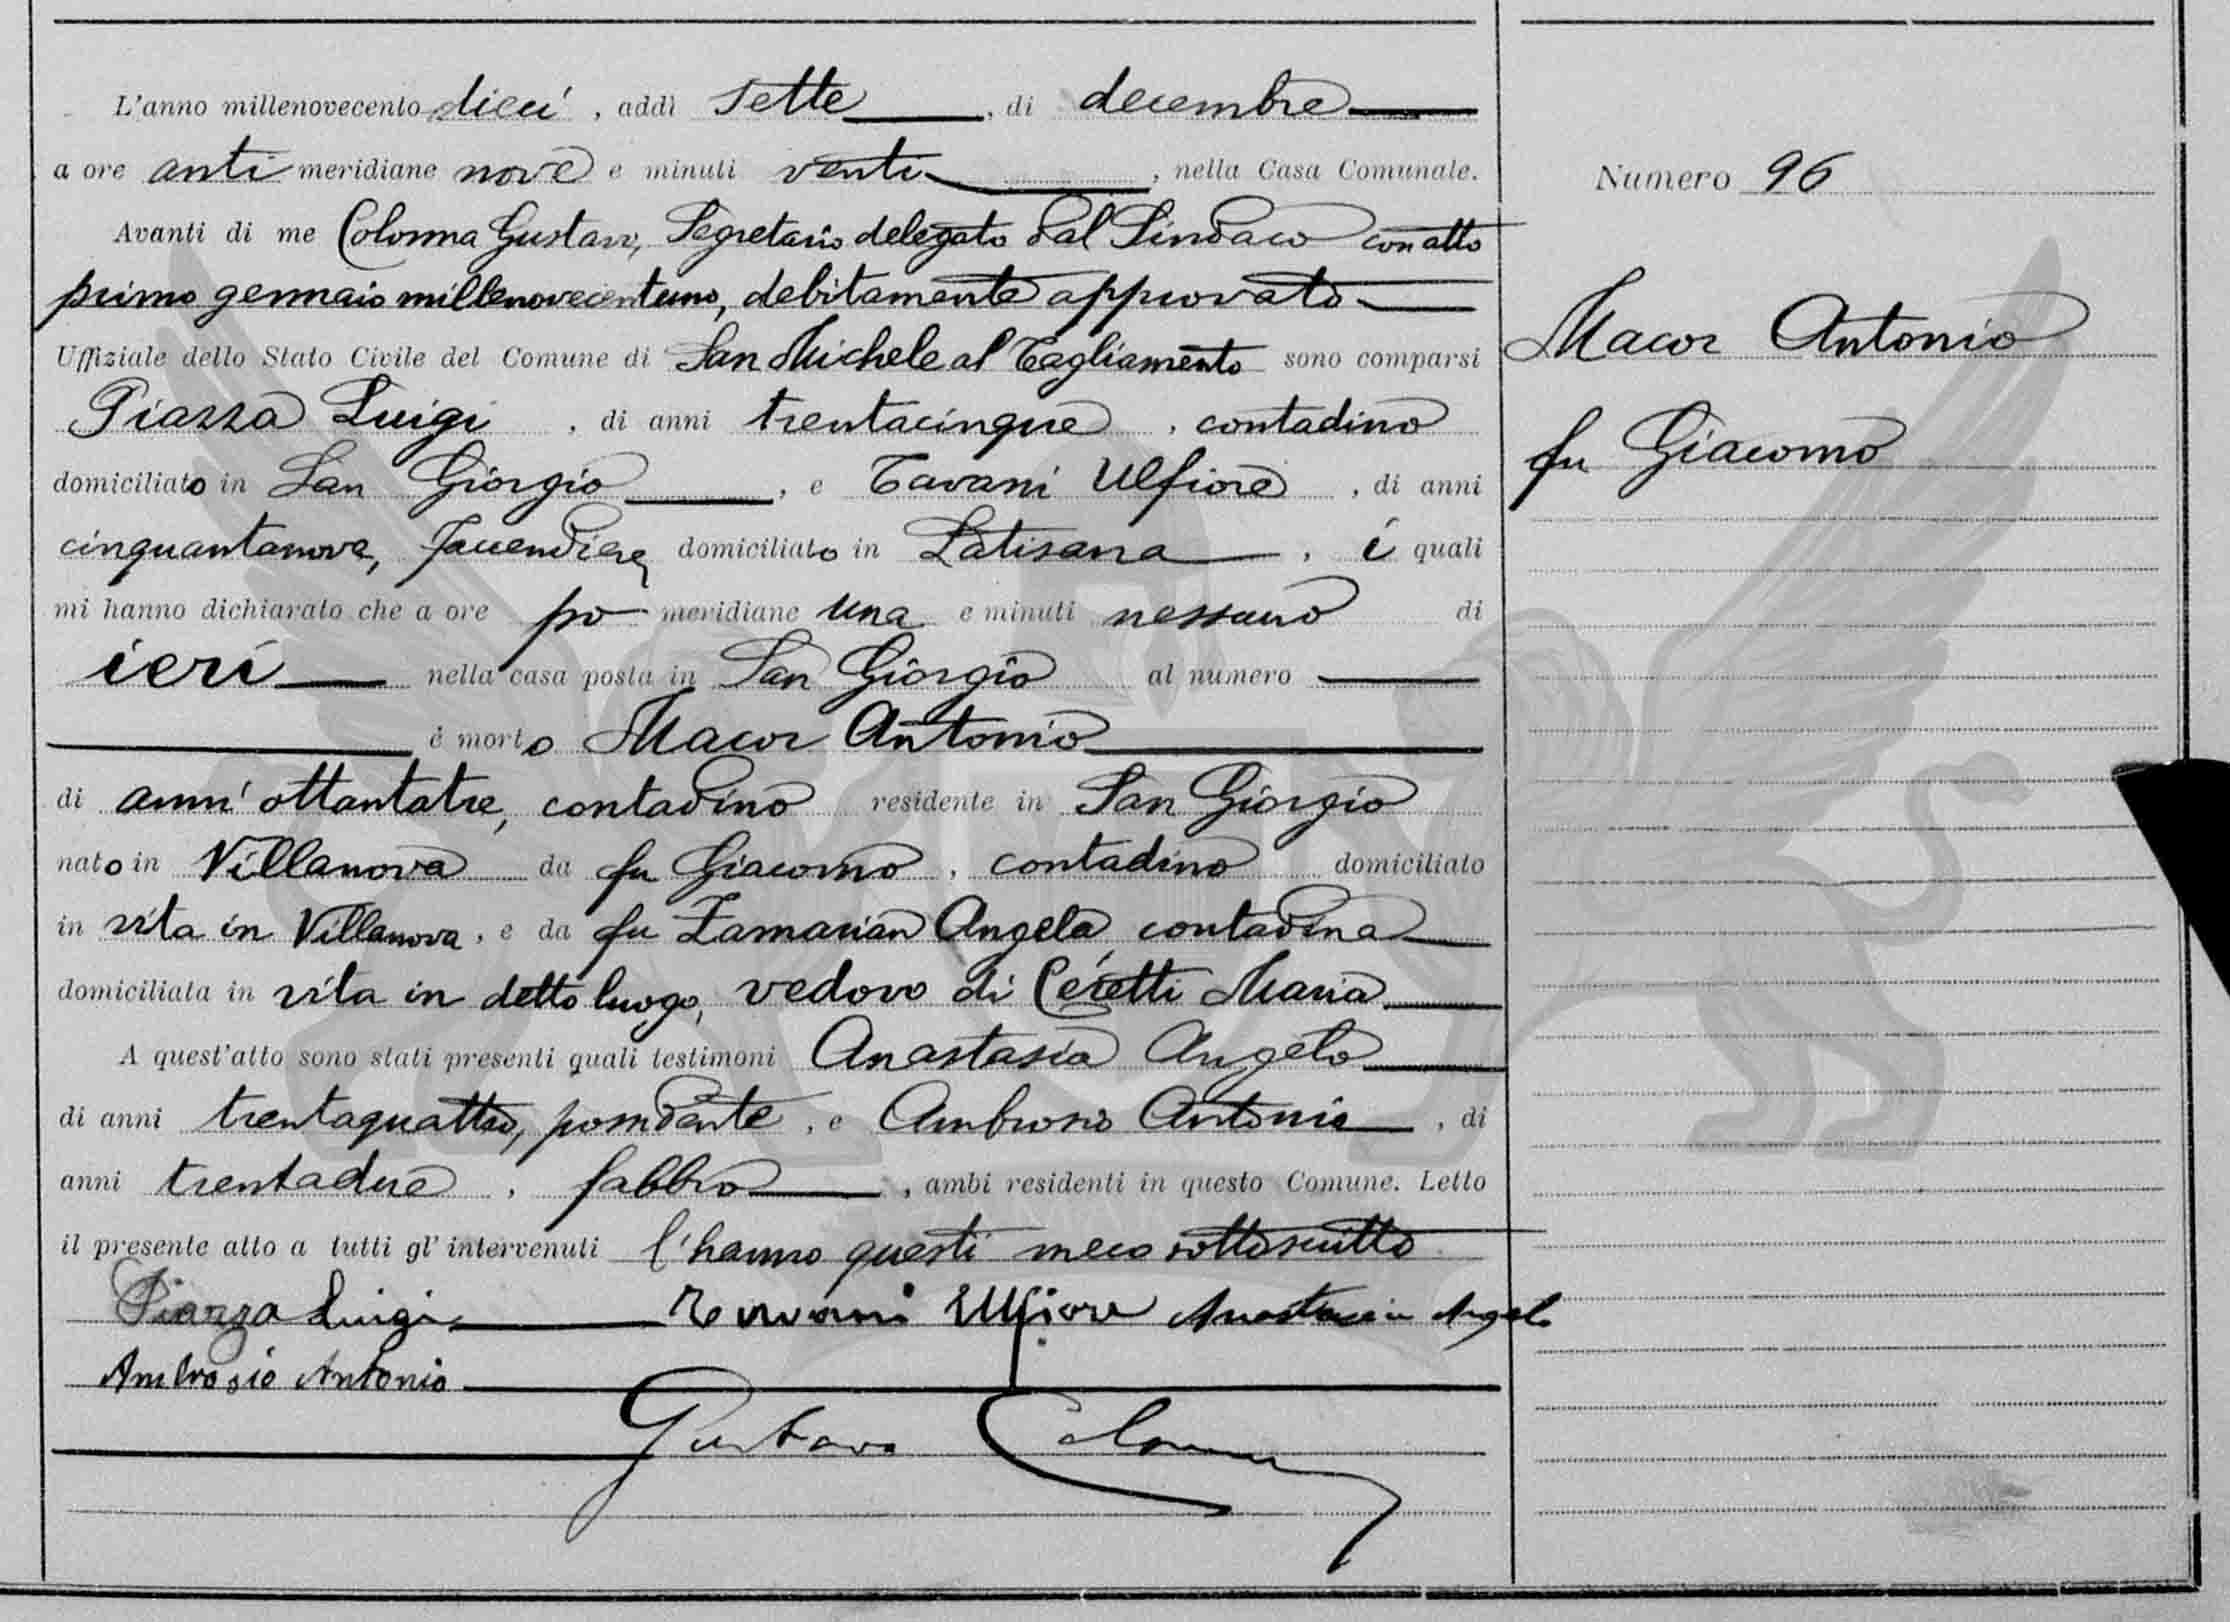 L'anno millenovecento dieci, addì sette, di decembre
a ore antimeridiane nove e minuti venti, nella Casa Comunale.
Numero 96
Avanti di me Colonna Gustavo, Segretario delegato dal Sindaco con atto
primo gennaio millenovecentuno, debitamente approvato
Uffiziale dello Stato Civile del Comune di San Michele al Tagliamento sono comparsi
Macor Antonio
Piazza Luigi, di anni trentacinque, contadino
fu Giacomo
domiciliato in San Giorgio, e Tavani Ulfiore, di anni
cinquantanove, faccendiere domiciliato in Latisana, i quali
mi hanno dichiarato che a ore pomeridiane una e minuti nessuno di
ieri nella casa posta in San Giorgio al numero
è morto Macor Antonio
di anni ottantatre, contadino residente in San Giorgio
nato in Villanova da fu Giacomo, contadino domiciliato
in vita in Villanova, e da fu Zamarian Angela, contadina
domiciliata in vita in detto luogo, vedovo di Ceretti Maria
A quest'atto sono stati presenti quali testimoni Anastasia Angelo
di anni trentaquattro, possidente, e Ambrosio Antonio, di
anni trentadue, fabbro, ambi residenti in questo Comune. Letto
il presente atto a tutti gl'intervenuti l'hanno questi meco sottoscritto
Piazza Luigi Tavani Ulfiore Anastasia Angelo
Ambrosio Antonio
Gustavo Colonna